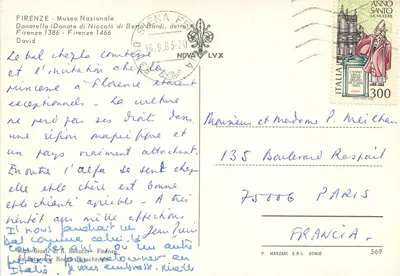 FIRENZE - Museo Nazionale
Donatello (Donato di Niccolò di Betto Bardi, detto)
Firenze 1386 - Firenze 1466
David
FIRENZE
16.9.83
NOVA LVX
ANNO
SANTO
ITALIA
300
Le bal chez la comtesse
et l'invitation chez la
princesse à Florence étaient
exceptionnels. La culture
ne perd pas ses droits dans
une région magnifique et
un pays vraiment attachant.
En outre l'alfa se sent chez
elle et la chère est bonne
et le chianti agréable. A très
bientôt avec mille affections
Il nous faudrait un
bal comme celui-là
tous les ans, ou un autre
prétexte pour retourner en
Italie. Je vous embrasse.
Monsieur et Madame P.
135 Boulevard Raspail
75006 PARIS
FRANCIA.
P. MARZARI S.R.L. SCHIO
569